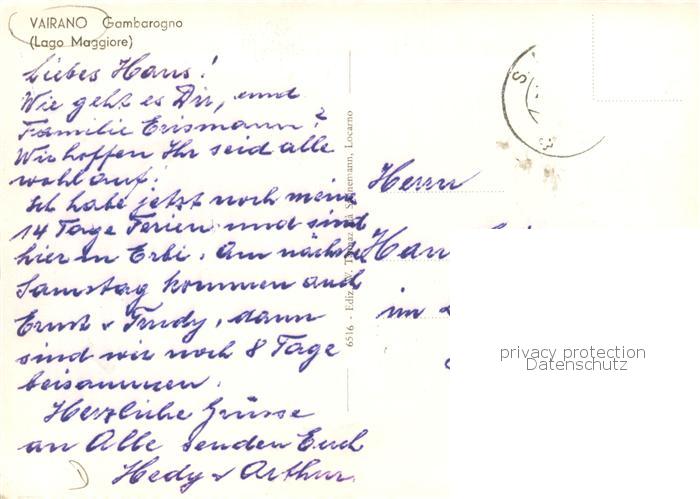 VAIRANO Gambarogno
(Lago Maggiore)
Liebes Hans!
Wie geht es Dir, und
Familie Erismann?
Wir hoffen Ihr seid alle
wohlauf!
Ich habe jetzt noch meine
14 Tage Ferien und sind
hier in Erbi. Am nächsten
Samstag kommen auch
Ernst & Trudy, dann
sind wir noch 8 Tage
beisammen.
Herzliche Grüsse
an Alle senden Euch
Hedy & Arthur.
6516 - Ediz. Locarno
Herrn
Han
im
privacy protection
Datenschutz